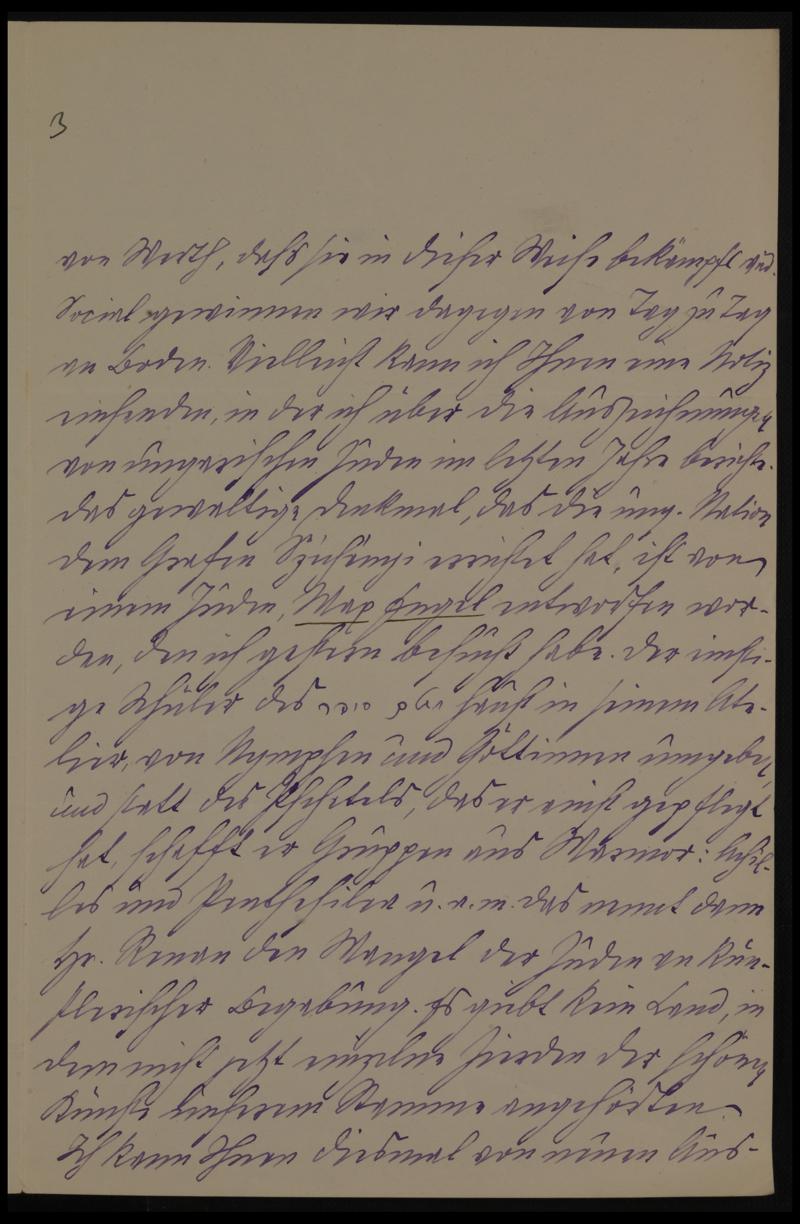 3
von Werth, daß sie in dieser Weise bekämpft wird.
Social gewinnen wir dagegen von Tag zu Tag
an Boden. Vielleicht kann ich Ihnen eine Notiz
einsenden, in der ich über die Auszeichnungen
von ungarischen Juden im letzten Jahre berichte.
Das gewaltige Denkmal, das die ung. Nation
dem Grafen Széchényi errichtet hat, ist von
einem Juden, Max Engel entworfen wor-
den, den ich gestern besucht habe. Der einsti-
ge Schüler des haust in seinem Ate-
lier, von Nymphen und Göttinnen umgeben,
und statt des Pschetels, das er einst gepflegt
hat, schafft er Gruppen aus Marmor: Achil-
les und Penthesilea u. a. m. Das nennt dann
Hr. Renan den Mangel der Juden an kün-
stlerischer Begabung. Es giebt kein Land, in
dem nicht jetzt einzelne Zierden der schönen
Künste unserem Stamme angehörten.
Ich kann Ihnen diesmal von neuen Aus-